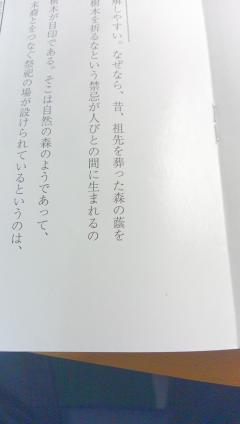 解しやすい。なぜなら、昔、祖先を葬った森の蔭を
樹木を折るなという禁忌が人びとの間に生まれるの
樹木が目印である。そこは自然の森のようであって、
末裔とをつなぐ祭祀の場が設けられているというのは、